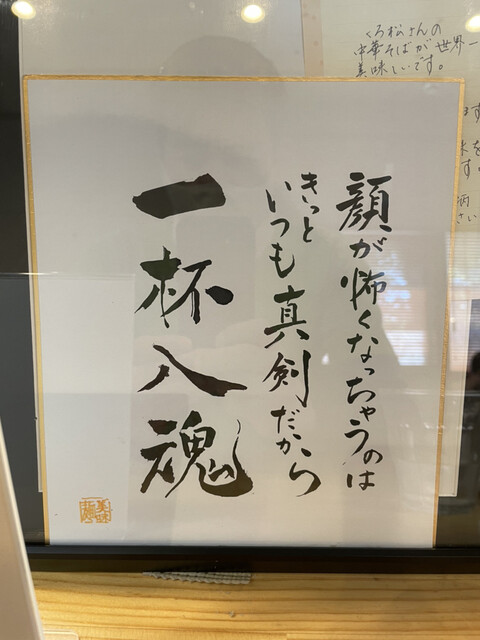 顔が怖くなっちゃうのは
きっと
いつも真剣だから
一杯入魂
くろ松さんの
中華そばが世界一
美味しいです。